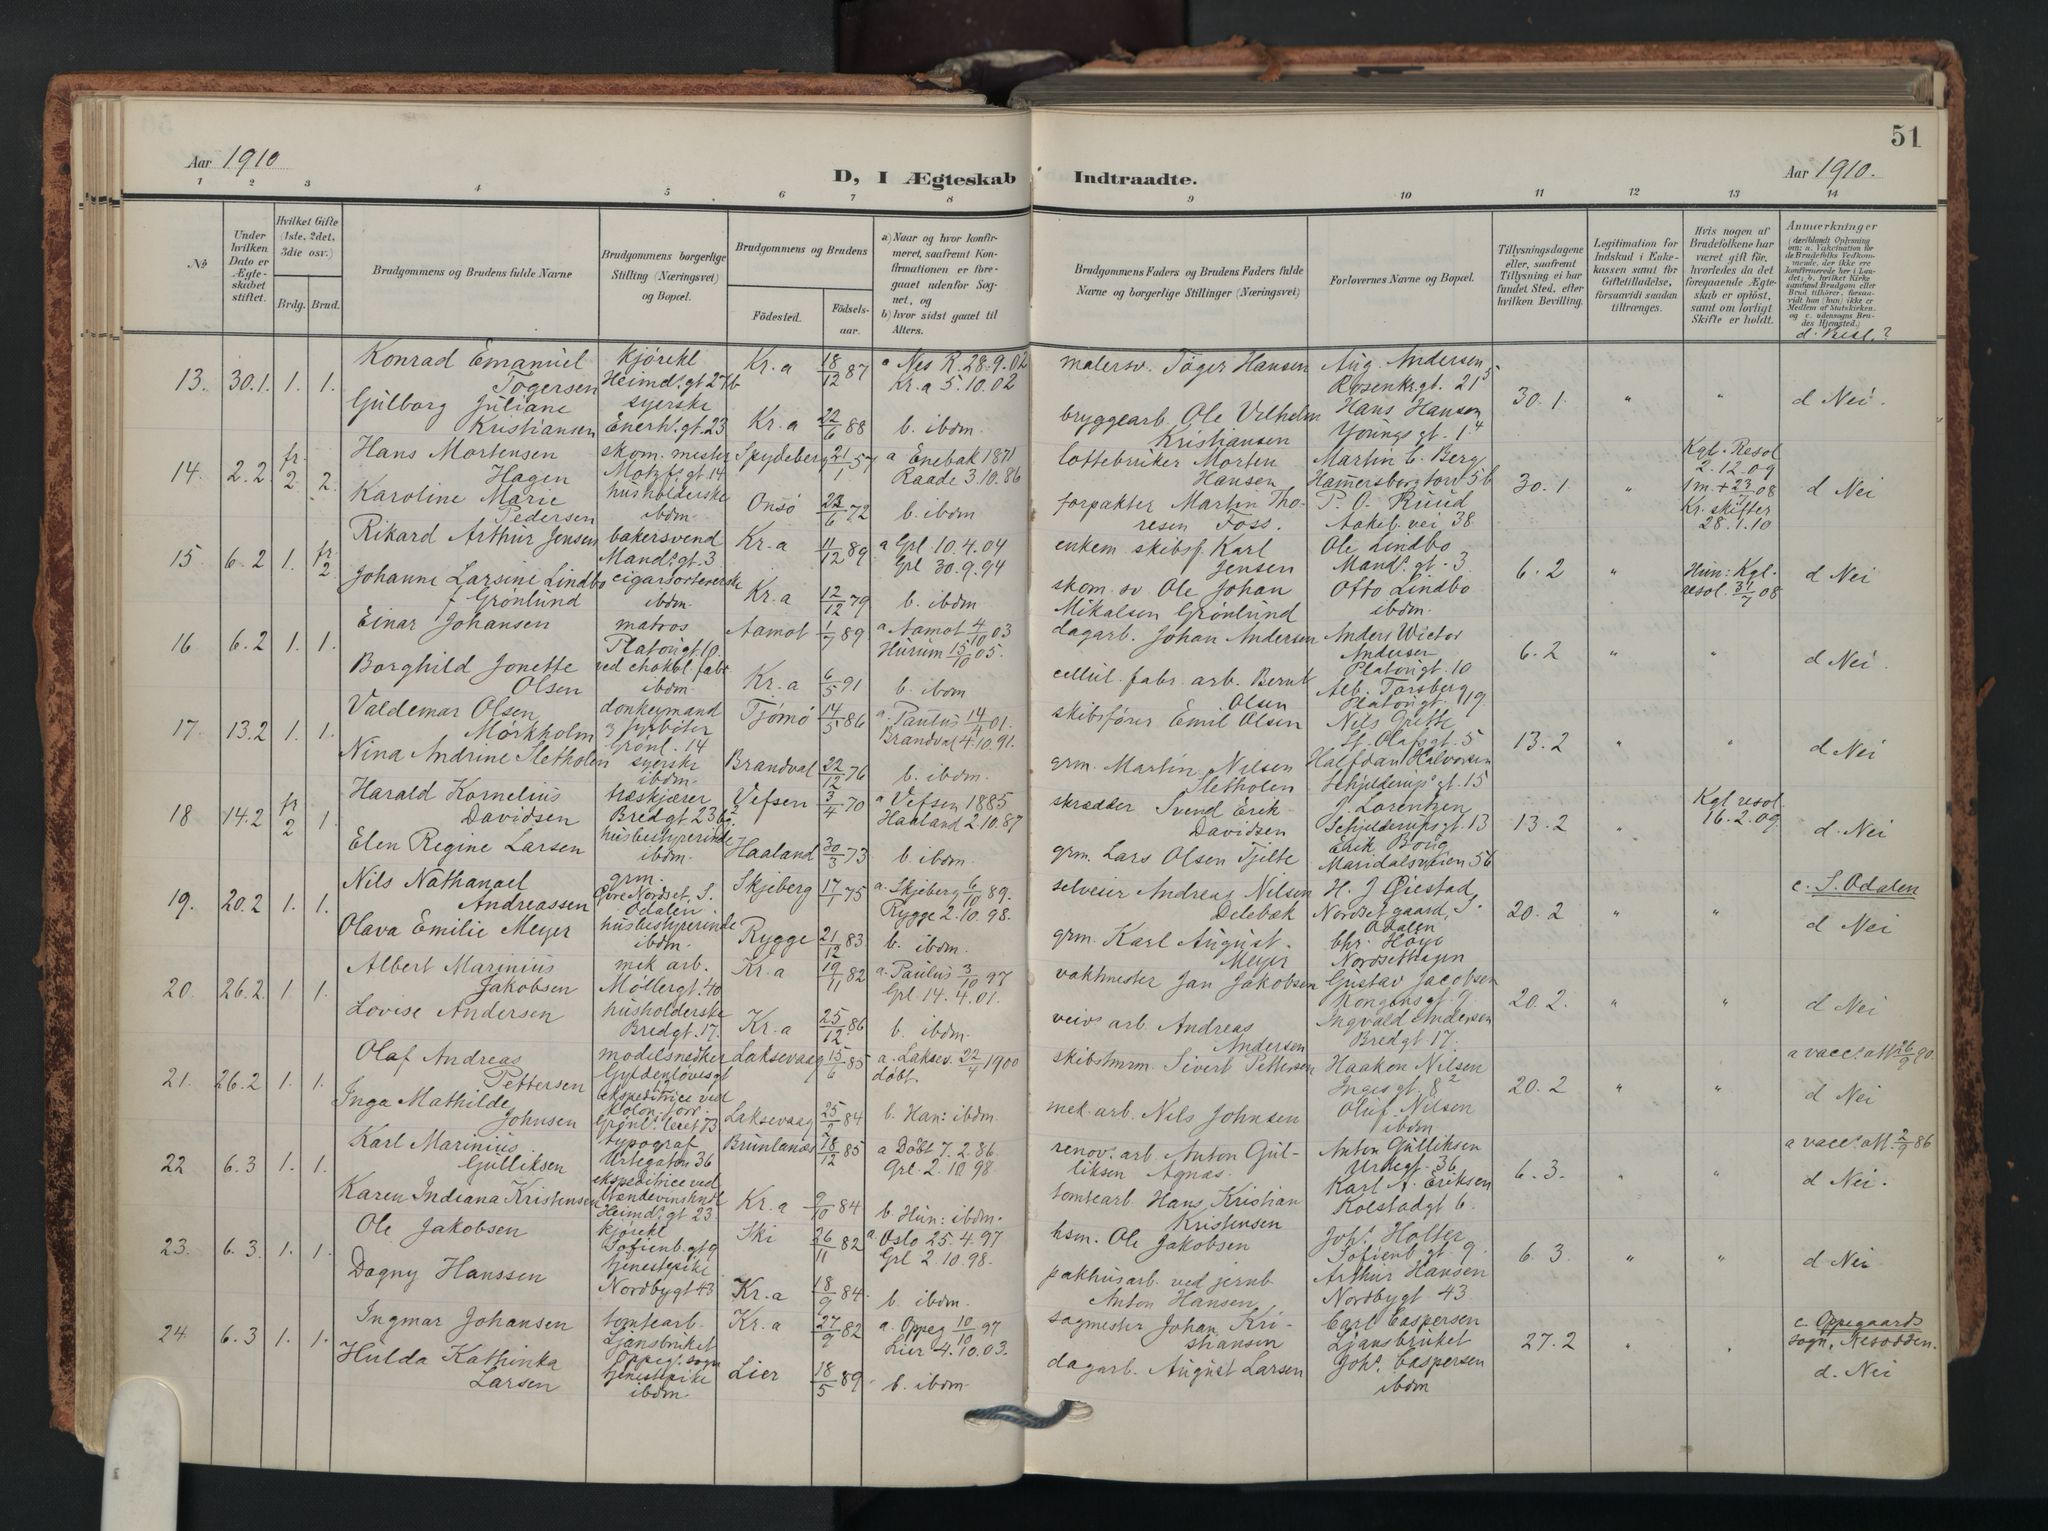 51
Aar 1910
D, I Ægteskab Indtraadte.
Aar 1910.
1 2 3 4 5 6 7 8 9 10 11 12 13 14
No
Under hvilken Dato er Ægteskabet stiftet.
Hvilket Gifte (1ste, 2det, 3die osv.)
Brdg. Brud.
Brudgommens og Brudens fulde Navne
Brudgommens borgerlige Stilling (Næringsvei) og Bopæl.
Brudgommens og Brudens
Födested. Födselsaar.
a) Naar og hvor konfirmeret, saafremt Konfirmationen er foregaaet udenfor Sognet, og
b) hvor sidst gaaet til Alters.
Brudgommens Faders og Brudens Faders fulde Navne og borgerlige Stillinger (Næringsvei)
Forlovernes Navne og Bopæl.
Tillysningsdagene eller, saafremt Tillysning ei har fundet Sted, efter hvilken Bevilling.
Legitimation for Indskud i Enkekassen samt for Giftetilladelse, forsaavidt saadan tiltrænges.
Hvis nogen af Brudefolkene har været gift før, hvorledes da det foregaaende Ægteskab er oplöst, samt om lovligt Skifte er holdt.
Anmærkninger
13. 30.1. 1. 1.
Konrad Emanuel Tøgersen
kjørekl Heimd.s gt 27b
Kr.a 18/12 87
a Nes R. 28.9.02
Kr.a 5.10.02
malersv. Tøger Hansen
Aug. Andersen
Rosenkr.gt. 21 5
30.1. " " d Nei.
Gulborg Juliane Kristiansen
syerske Enerh.gt. 23
Kr.a 22/6 88
b. ibdm.
bryggearb. Ole Vilhelm Kristiansen
Hans Hansen
Youngs gt. 1 4
14. 2.2 fr 2 2.
Hans Mortensen Hagen
skom. mester Motzf.s gt 14
Spydeberg 21/1 57
a Enebak 1871
Raade 3.10.86
lottebruker Morten Hansen
Martin C. Berg
Hammersborgtorv 5b
30.1. "
Kgl. Resol 2.12.09
1m + 23/7 08
Kr. skifter 28.1.10
d Nei
Karoline Marie Pedersen
husholderske ibdm.
Onsö 22/6 72
b. ibdm
forpakter Martin Thoresen Foss.
P. O. Ruud
Aakeb.vei 38
15. 6.2 1. fr 2
Rikard Arthur Jensen
bakersvend Mand.s gt. 3
Kr.a 11/12 89
a Grl 10.4.04
Grl 30.9.94
enkem. skibsf. Karl Jensen
Ole Lindbo
Mand.s gt. 3
6.2 "
Hun: Kgl. resol. 31/7 08
d Nei
Johanne Larsine Lindbo f Grønlund
cigarsorteverske ibdm.
Kr.a 12/12 79
b. ibdm
skom. sv. Ole Johan Mikalsen Grønlund
Otto Lindbo
ibdm.
16 6.2 1. 1.
Einar Johansen
matros Platous gt. 10.
Aamot 1/7 89
a. Aamot 4/10 03
Hurum 15/10 05.
dagarb. Johan Andersen
Anders Victor Andersen
Platous gt. 10
6.2 " " d Nei.
Borghild Jonette Olsen
ved chokbl. fabr ibdm.
Kr.a 6/5 91
b. ibdm
cellul. fabr. arb. Bernt Olsen
Alb. Torsberg
Platous gt. 19
17. 13.2 1. 1.
Valdemar Olsen Mørkholm
donkeymand og fyrbøter Grønl. 14
Tjømö 14/5 86
a. Paulus 14/4 01.
Brandval 4.10.91.
skibsfører Emil Olsen
Nils Grette
St. Olafs gt. 5
13.2 " " d Nei
Nina Andrine Sletholen
syerske ibdm.
Brandval 22/12 76
b. ibdm.
grm. Martin Nilsen Sletholen
Halfdan Halvorsen
Schjelderups gt. 15
18 14.2 fr 2 1.
Harald Kornelius Davidsen
træskjærer Bredgt 23
Vefsen 3/4 70
a Vefsen 1885
Haaland 2.10.87
skrædder Svend Erik Davidsen
J. Lorentzen
Schjelderups gt. 13
13.2 "
Kgl resol. 16.2.09
d. Nei
Elen Regine Larsen
husbestyrerinde ibdm.
Haaland 30/3 73
b. ibdm.
grm. Lars Olsen Tjelte
Erik Borg
Maridalsveien 56
19. 20.2 1. 1.
Nils Nathanael Andreassen
grm. Øvre Nordset, S. Odalen.
Skjeberg 17/1 75
a. Skjeberg 6/10 89.
Rygge 2.10.98.
selveier Andreas Nilsen Delebæk
H. J Øiestad
Nordset gaard, S. Odalen
20.2 " "
c. S. Odalen
d Nei
Olava Emilie Meyer
husbestyrerinde ibdm.
Rygge 21/12 83
b. ibdm.
grm. Karl August Meyer
bhr. Høye
Nordsethagen
20. 26.2. 1. 1.
Albert Marinius Jakobsen
mek arb. Møllergt. 40
Kr.a 19/11 82
a. Paulus 3/10 97
Grl 14.4.01.
vaktmester Jan Jakobsen
Gustav Jacobsen
Kongens gt. 9
20.2. " " d Nei
Lovise Andersen
husholderske Bredgt. 17.
Kr.a 25/12 86
b. ibdm.
veivs arb. Andreas Andersen
Ingvald Andersen
Bredgt 17.
21. 26.2 1. 1.
Olaf Andreas Pettersen
modelsnedker Gyldenløves gt 12
Laksevaag 15/6 85
a. Laksev. 22/4 1900
døbt.
skibstmm. Sivert Pettersen
Haakon Nilsen
Inges gt. 8 2
20.2 " "
a vacc.s att. 26/9 90.
d Nei
Inga Mathilde Johnsen
ekspeditrice ved Kolon. forr. Grønl.s leret 73
Laksevaag 25/2 84
b. Han: ibdm
mek. arb. Nils Johnsen
Oluf Nilsen
ibdm
22 6.3 1. 1.
Karl Marinius Gulliksen
typograf Urtegaten 36
Brunlanæs 18/12 85
a Døbt 7.2.86.
Grl. 2.10.98.
renov. arb Anton Gulliksen Agnæs.
Anton Gulliksen
Urtegt. 36
6.3. " "
a vacc.s att. 2/9 86
d Nei.
Karen Indiana Kristensen
ekspeditrice ved Heimd.s gt 23
Kr.a 9/10 84
b. Hun: ibdm.
tomtearb. Hans Kristian Kristensen
Karl A. Eriksen
Kolstadgt 6.
23. 6.3. 1. 1.
Ole Jakobsen
kjørekl Sofienb. gt 9
Ski 26/11 82
a. Oslo 25.4.97
Grl 2.10.98.
hsm. Ole Jakobsen
Joh.s Holter
Sofienb. gt. 9.
6.3. " " d Nei
Dagny Hanssen
tjenestepike Nordbygt 43
Kr.a 18/9 84.
b. ibdm.
pakhusarb. ved jernb Anton Hansen
Arthur Hansen
Nordbygt 43.
24 6.3 1. 1.
Ingmar Johansen
tomtearb. Ljansbruket Oppeg. sogn
Kr.a 27/9 82
a. Oppeg 10/10 97
Lier 4.10.03.
sagmester Johan Kristiansen
Carl Caspersen
Ljansbruket
27.2 " "
c. Oppegaards sogn, Nesodden.
d. Nei
Hulda Kathinka Larsen
tjenestepike ibdm.
Lier 18/5 89
b. ibdm
dagarb. August Larsen
Joh.s Caspersen
ibdm